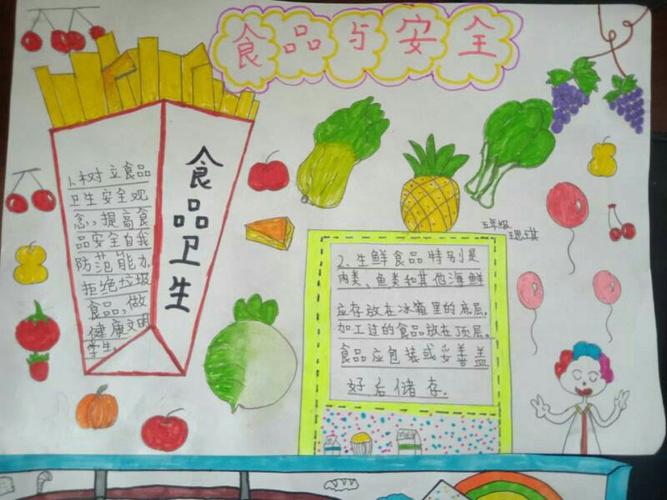 食品与安全
食品卫生
1.树立食品
卫生安全观
念，提高食
品安全自我
防范能力，
拒绝垃圾
食品，做
健康文明
学生。
五年级
2.生鲜食品特别是
肉类、鱼类和其他海鲜
应存放在冰箱里的底层.
加工过的食品放在顶层.
食品应包装或妥善盖
好后储存.